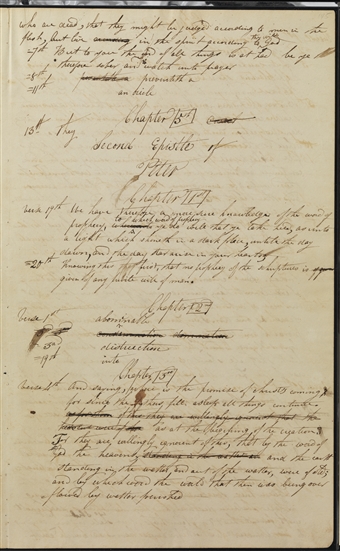 who are dead, that they might be judged according to men in the
flesh, but live in the spirit according to the will of God
=7th But to you the end of all things is at hand be ye
therefore sober and watch unto prayer
=8th preventeth a
=11th an oricle
Chapter 5th
13th They
Second Epistle of
Peter
Chapter 1st
verse 19th We have therefore a more sure knowledge of the word of
prophecy, to which word of prophecy ye do well that ye take heed, as unto
a light which shineth in a dark place, until the day
dawn, and the day star arise in your hearts
=20th Knowing this first, that no prophecy of the scriptures is
given of any private will of man.
Chapter 2d
verse 1st abominable
3d destruction
=19th into
Chapter 3d
verse 4th And saying, where is the promise of Christ's coming?
for since the fathers fell asleep all things continue
as at the beginning of the creation
For they are willingly ignorant of this, that by the word of
God the heavens and the earth
standing in the water, and out of the water, were of old;
and by which word the world that then was being over
flowed by water perished